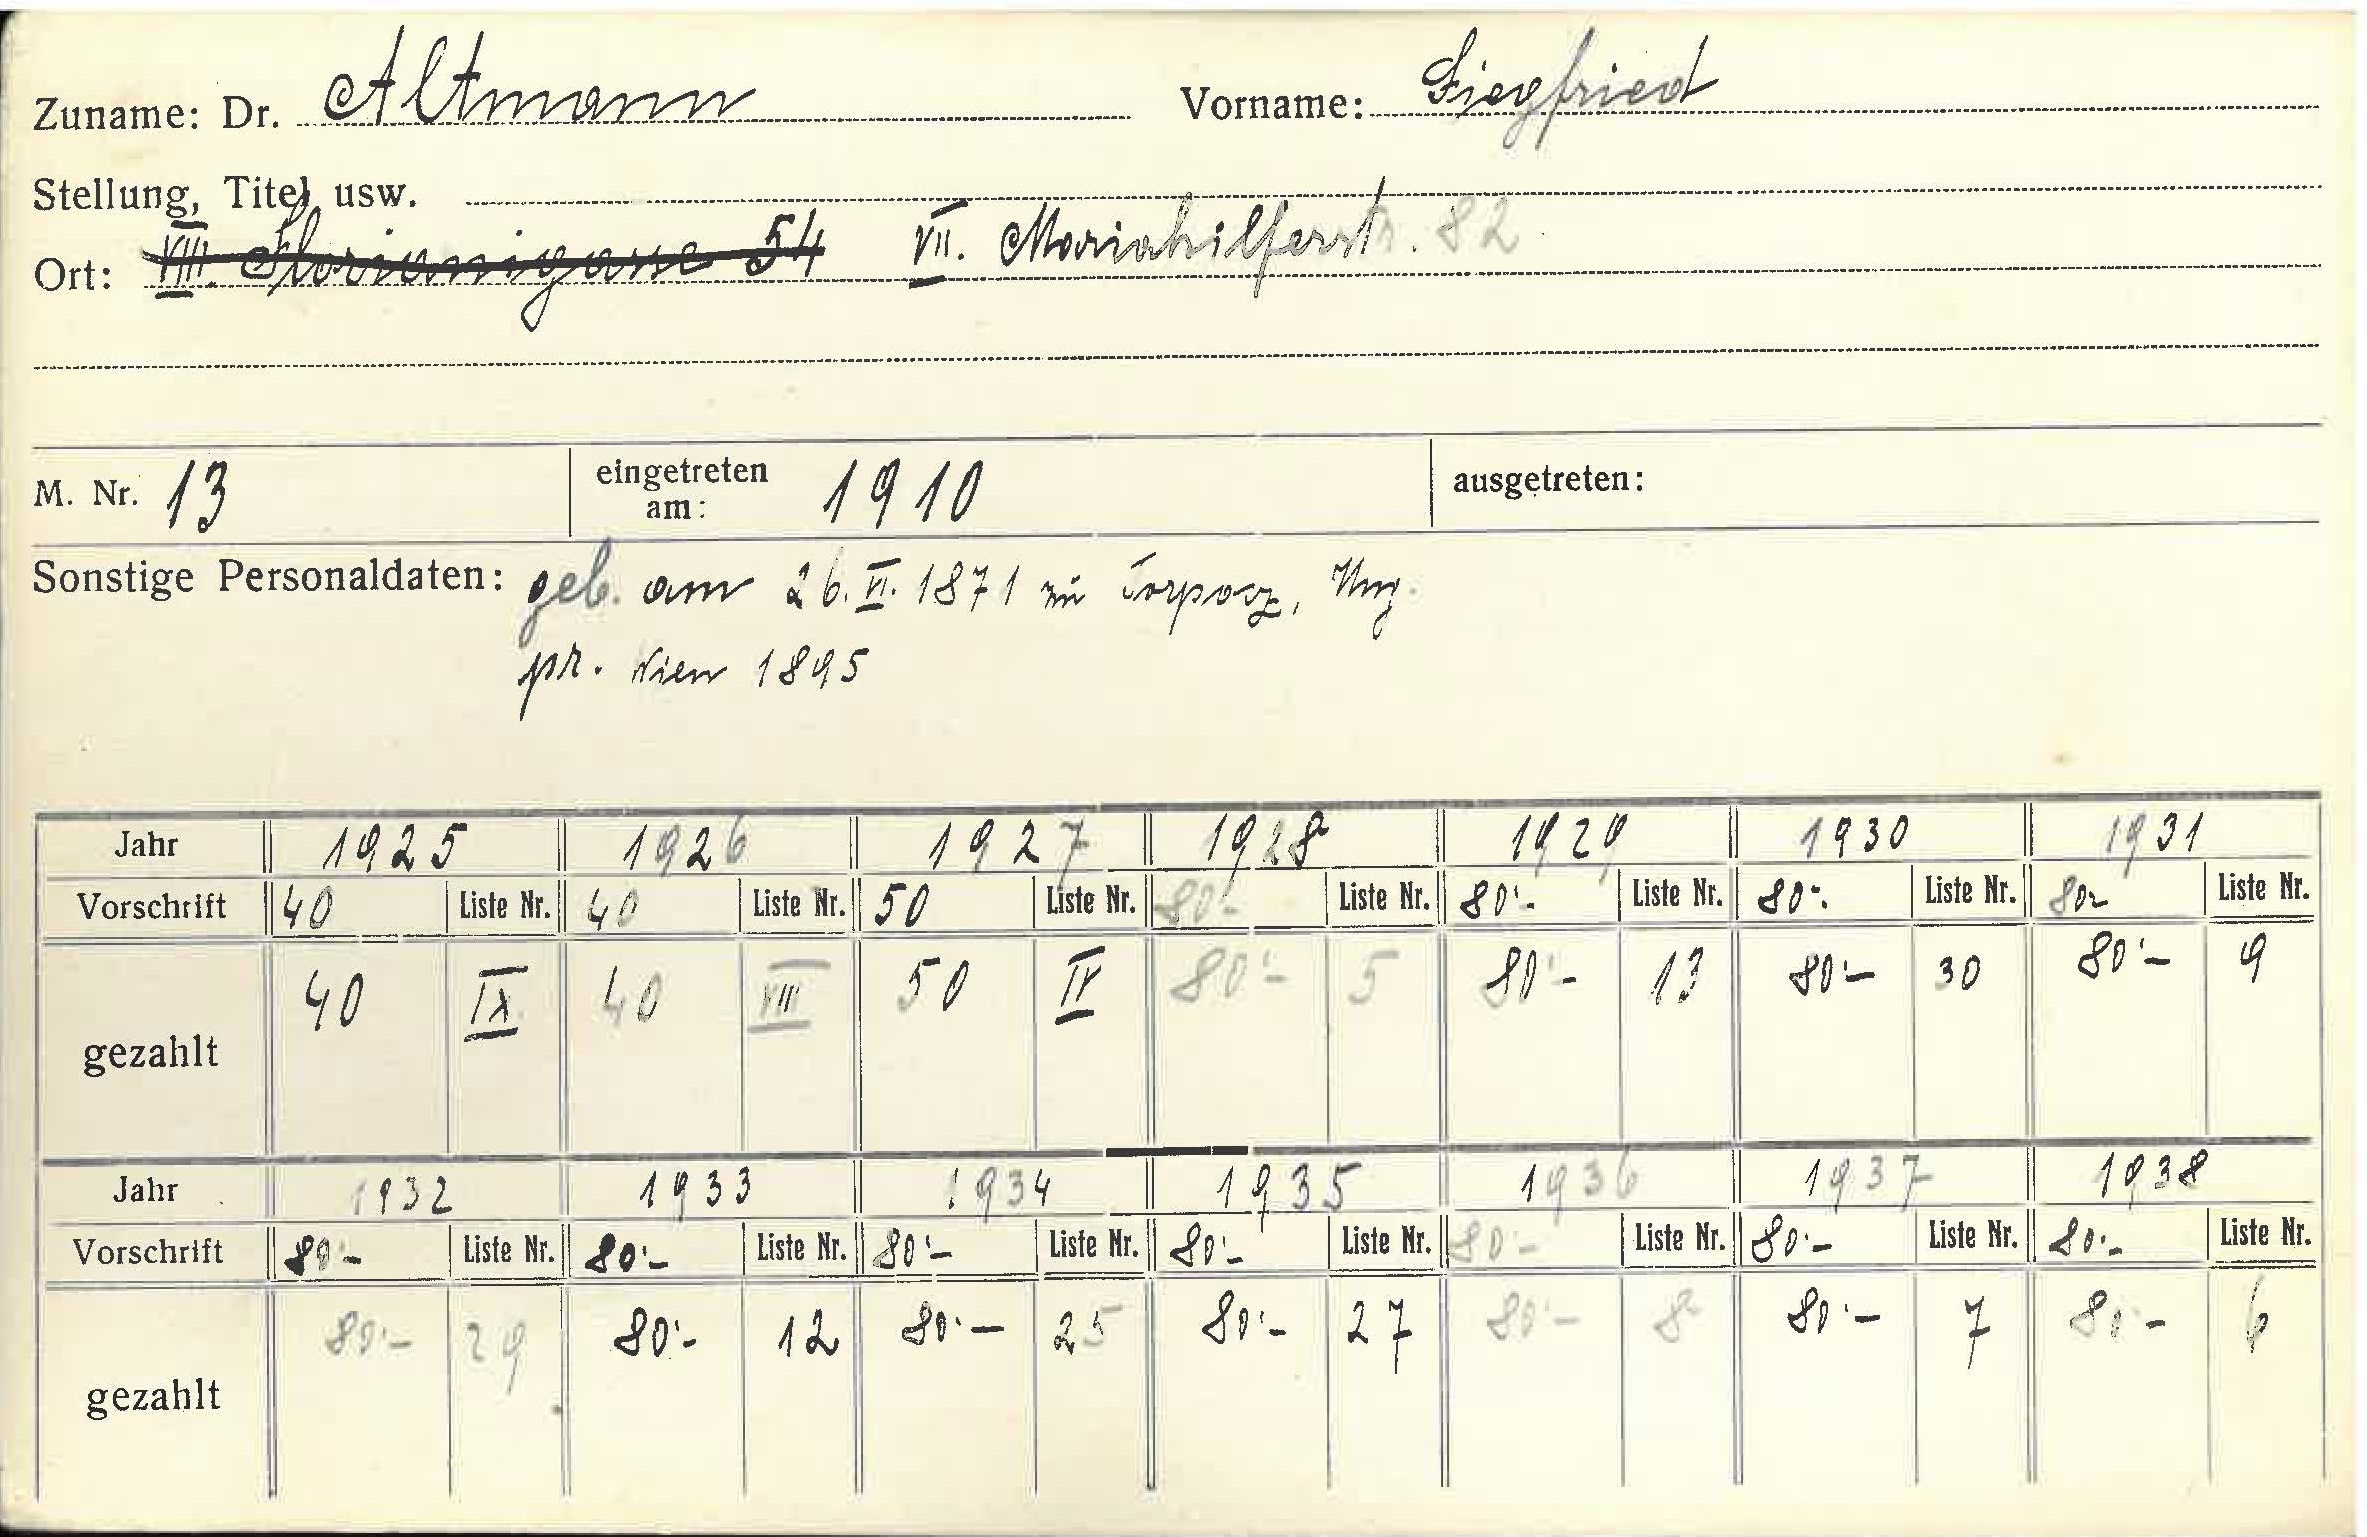 Zuname: Dr. Altmann Vorname: Siegfried
Stellung, Titel usw.
Ort: VIII. Florianigasse 54 VII. Mariahilferstr. 82
M. Nr. 13 eingetreten am: 1910 ausgetreten:
Sonstige Personaldaten: geb. am 26. VI. 1871 zu Torposz, Ung.
pr. Wien 1895
Jahr 1925 1926 1927 1928 1929 1930 1931
Vorschrift 40 Liste Nr. 40 Liste Nr. 50 Liste Nr. 80·- Liste Nr. 80·- Liste Nr. 80·- Liste Nr. 80- Liste Nr.
gezahlt 40 IX 40 VIII 50 IV 80·- 5 80·- 13 80·- 30 80·- 9
Jahr 1932 1933 1934 1935 1936 1937 1938
Vorschrift 80·- Liste Nr. 80·- Liste Nr. 80·- Liste Nr. 80·- Liste Nr. 80·- Liste Nr. 80·- Liste Nr. 80·- Liste Nr.
gezahlt 80·- 29 80·- 12 80·- 25 80·- 27 80·- 8 80·- 7 80·- 6